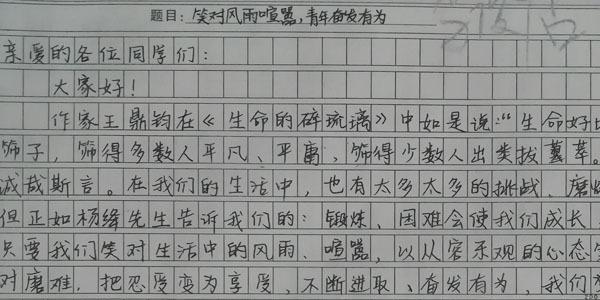 题目：笑对风雨喧嚣，青年奋发有为
亲爱的各位同学们：
大家好！
作家王鼎钧在《生命的碎琉璃》中如是说：“生命好比
筛子，筛得多数人平凡、平庸，筛得少数人出类拔萃。
诚哉斯言。在我们的生活中，也有太多太多的挑战、磨
但正如杨绛先生告诉我们的：锻炼、困难会使我们成长
只要我们笑对生活中的风雨、喧嚣，以从容乐观的心态
对磨难，把忍受变为享受，不断进取、奋发有为，我们